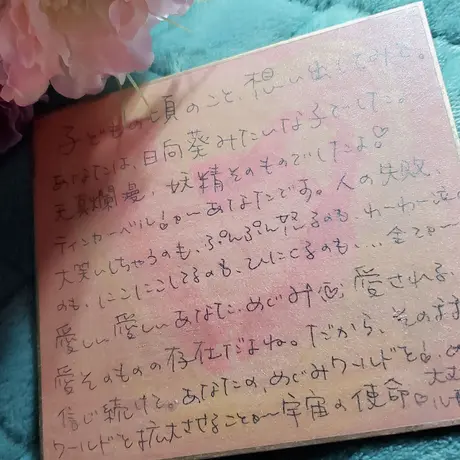 子どもの頃のこと、想い出してみて。
あなたは、日向葵みたいな子でした。
天真爛漫、妖精そのものでしたよ♡
ティンカーベル!が〜あなたです。人の失敗、
大笑いしちゃうのも、ぷんぷん怒るのも、わーわー泣
のも、にこにこしてるのも、ひにくるのも…、全てが〜
愛しい愛しいあなた。めぐみ♡、愛される、
愛そのものの存在だよね。だから、そのまま
信じ続けて。あなたのめぐみワールドを!
ワールドを拡大させることが〜宇宙の使命♡大丈